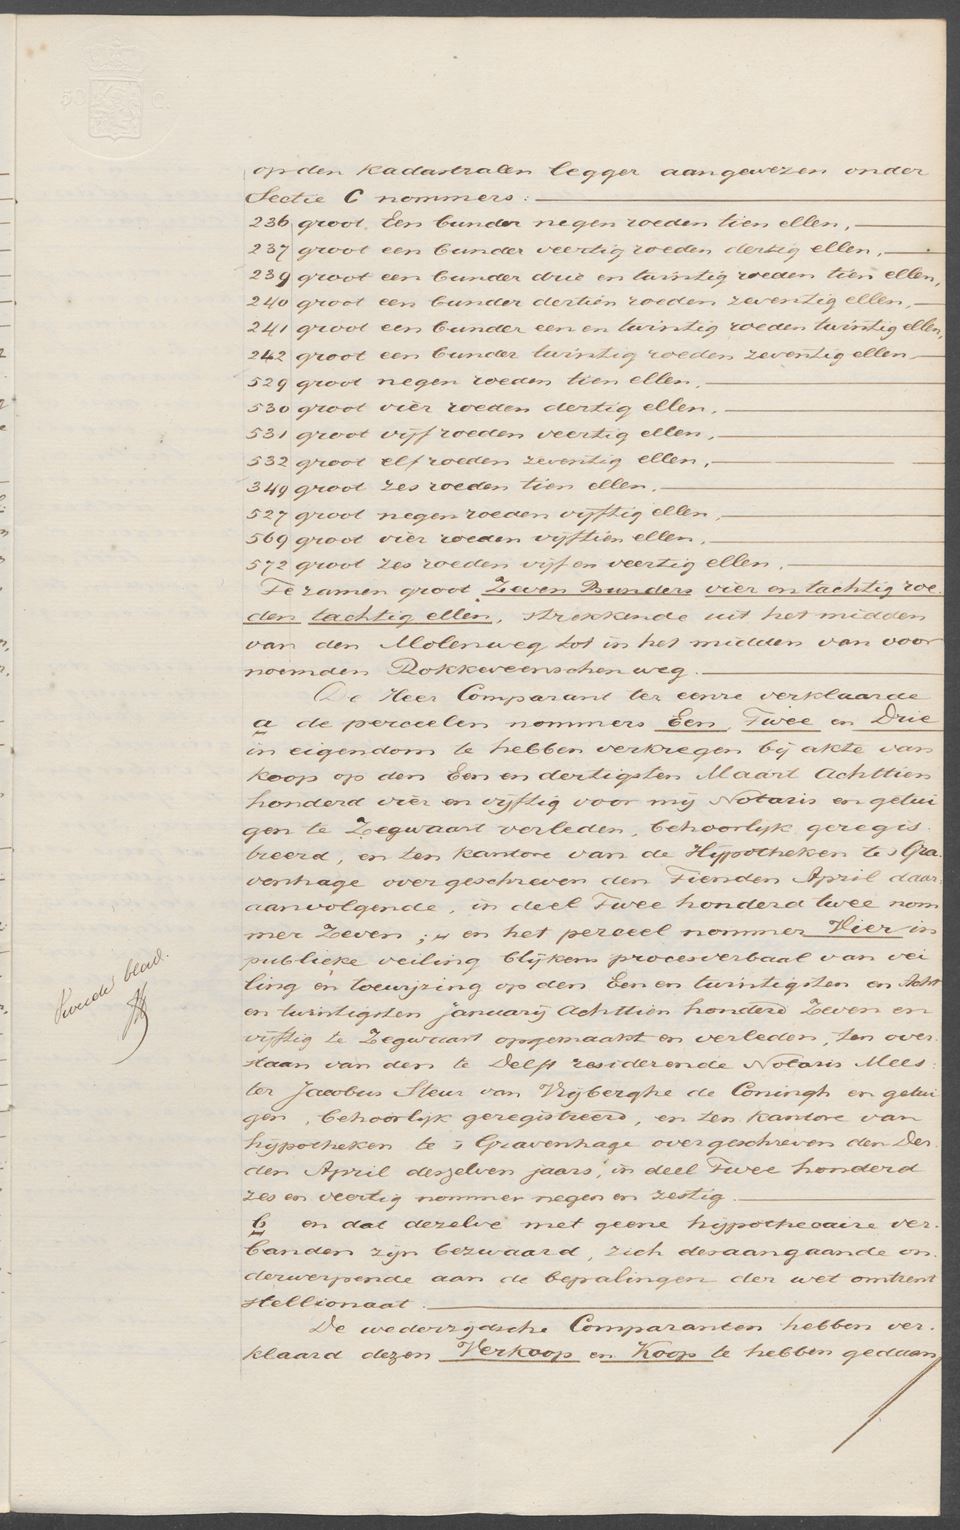 50 C.
op den kadastralen legger aangewezen onder
Sectie C nommers:
236 groot Een bunder negen roeden tien ellen,
237 groot een bunder veertig roeden dertig ellen,
239 groot een bunder drie en twintig roeden tien ellen,
240 groot een bunder dertien roeden zeventig ellen,
241 groot een bunder een en twintig roeden twintig ellen,
242 groot een bunder twintig roeden zeventig ellen
529 groot negen roeden tien ellen,
530 groot vier roeden dertig ellen,
531 groot vijf roeden veertig ellen,
532 groot elf roeden zeventig ellen,
349 groot zes roeden tien ellen,
527 groot negen roeden vijftig ellen,
569 groot vier roeden vijftien ellen,
572 groot zes roeden vijf en veertig ellen,
Te zamen groot Zeven Bunders vier en tachtig roe-
den tachtig ellen, strekkende uit het midden
van den Molenweg tot in het midden van voor
noemden Rokkeveenschen weg.
De Heer Comparant ter eenre verklaarde
a de perceelen nommers Een, Twee en Drie
in eigendom te hebben verkregen bij akte van
koop op den Een en dertigsten Maart Achttien
honderd vier en vijftig voor mij Notaris en getui
gen te Zegwaart verleden, behoorlijk geregis-
treerd, en ten kantore van de Hypotheken te s Gra-
venhage overgeschreven den Tienden April daar-
aanvolgende, in deel Twee honderd twee nom
mer Zeven; en het perceel nommer Vier in
publieke veiling blijkens procesverbaal van vei
ling en toewijzing op den Een en twintigsten en Acht
en twintigsten januarij Achttien honderd Zeven en
vijftig te Zegwaart opgemaakt en verleden, ten over-
staan van den te Delft residerende Notaris Mees-
ter Jacobus Steur van Vrijberghe de Coningh en getui
gen, behoorlijk geregistreerd, en ten kantore van
hypotheken te s Gravenhage overgeschreven den Der-
den April deszelven jaars, in deel Twee honderd
zes en veertig nommer negen en zestig.
b en dat dezelve met geene hypothecaire ver-
banden zijn bezwaard, zich desaangaande on-
derwerpende aan de bepalingen der wet omtrent
stellionaat.
De wederzydsche Comparanten hebben ver-
klaard dezen Verkoop en Koop te hebben gedaan
Tweede blad.